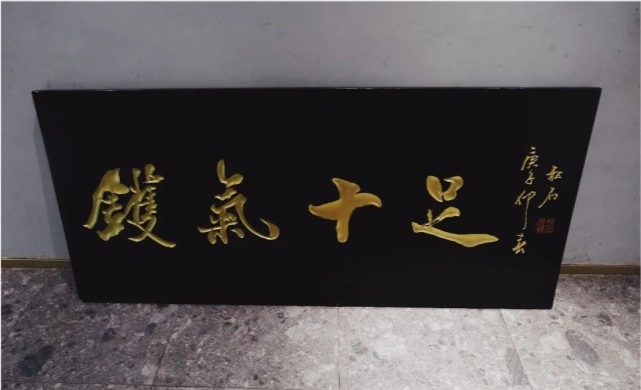 鑊氣十足
庚子仲春